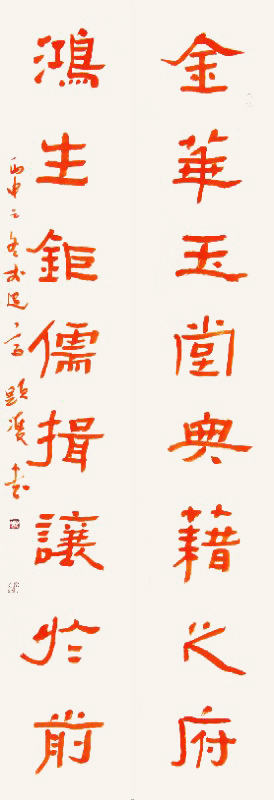 金華玉堂典藉之府
鴻生鉅儒揖讓於前
丙申之冬
顯
書